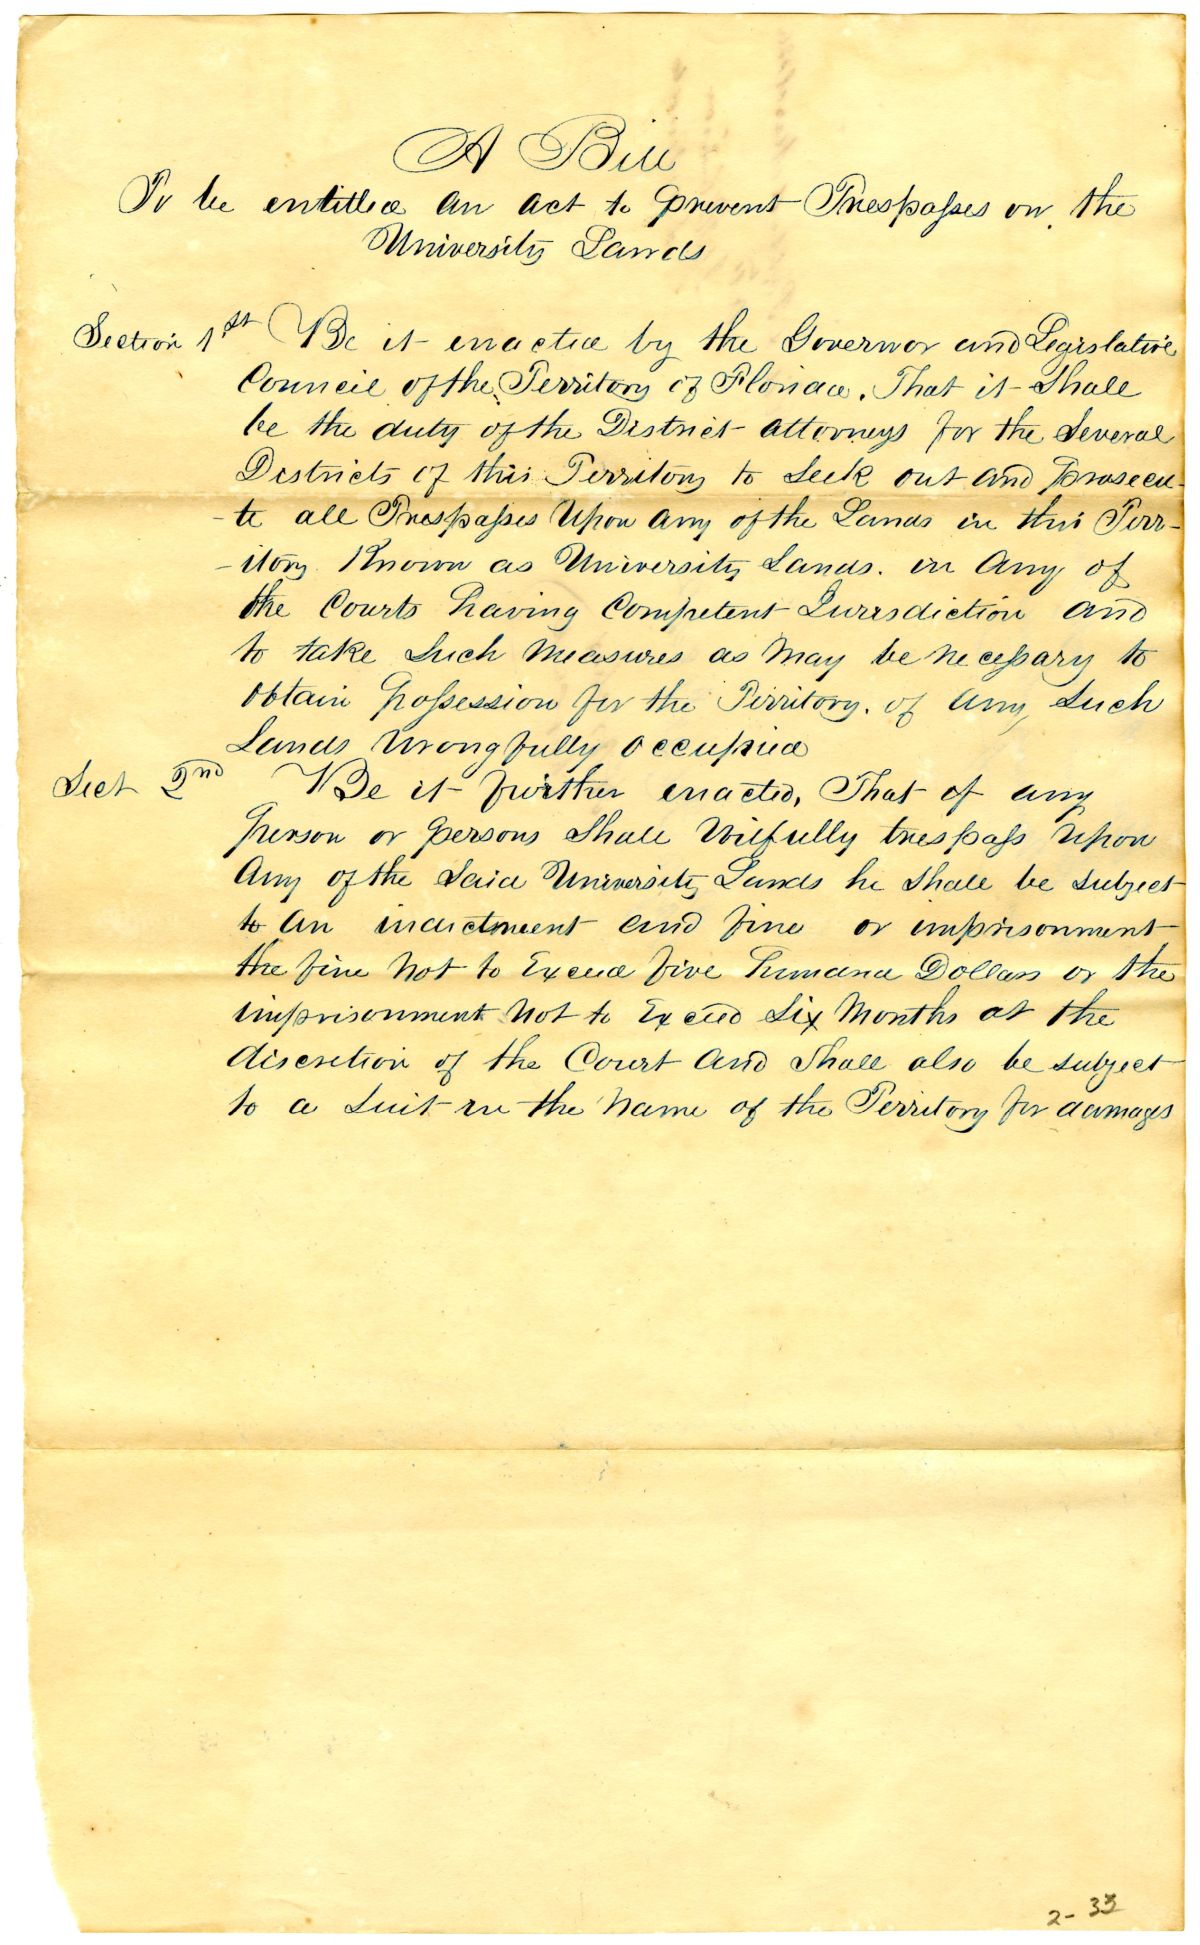 A Bill
To be entitled an act to prevent Trespasses on the
University Lands
Section 1st Be it enacted by the Governor and Legislative
Council of the Territory of Florida. That it Shall
be the duty of the District attorneys for the Several
Districts of this Territory to Seek out and prosecu-
-te all Trespasses Upon any of the Lands in this Terr-
-itory Known as University Lands. in Any of
the Courts having Competent Jurisdiction and
to take Such Measures as May be necessary to
obtain possession for the Territory. of any Such
Lands wrongfully occupied
Sect 2nd Be it further enacted, That if any
person or persons Shall Wilfully trespass Upon
Any of the Said University Lands he Shall be subject
to an indictment and fine or imprisonment
the fine Not to Exceed five hundred Dollars or the
imprisonment Not to Exceed Six Months at the
discretion of the Court and Shall also be subject
to a Suit in the Name of the Territory for damages
2-33